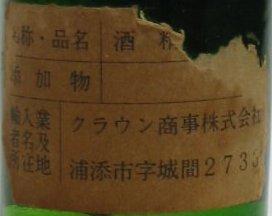 名称・品名 酒 精
添加物
輸入業
者名及 クラウン商事株式会社
所在地 浦添市字城間2735